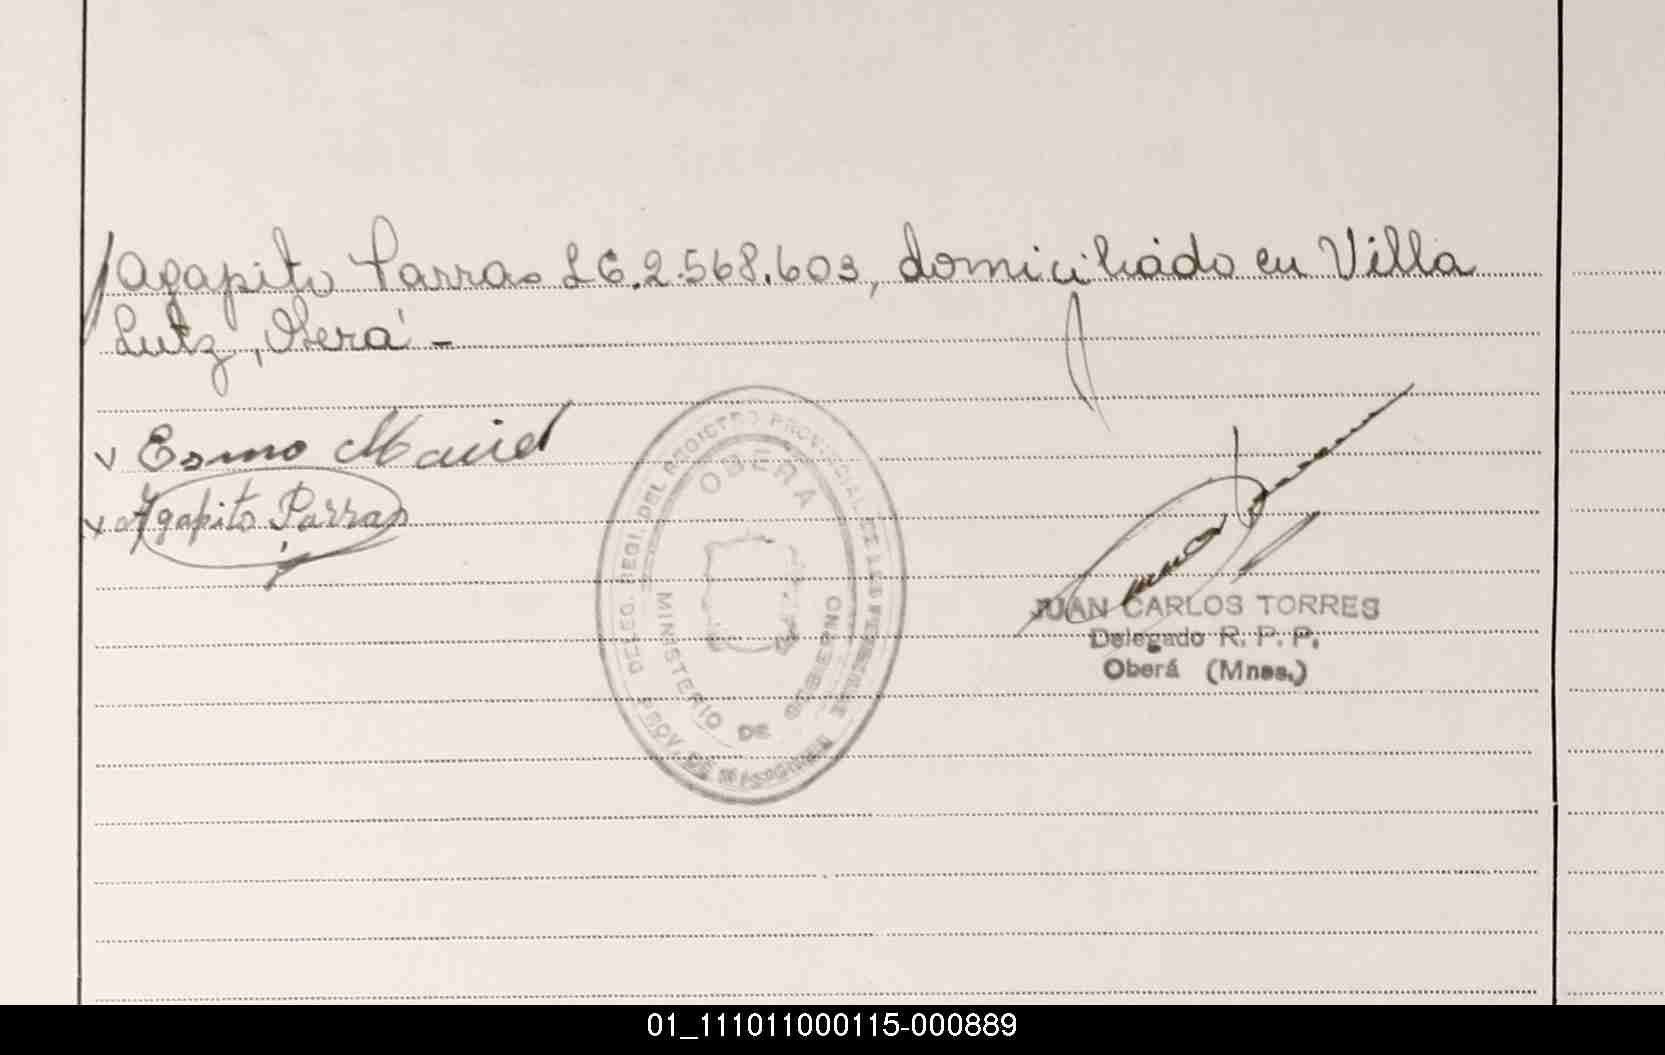 Agapito Parras L E. 2.568.603, domiciliado en Villa
Lutz, Oberá -
Esmo Maciel
Agapito Parras
DELEG. REGI. DEL REGISTRO PROVINCIAL DE LAS PERSONAS
OBERA
MINISTERIO DE GOBIERNO
PROV. DE MISIONES
JUAN CARLOS TORRES
Delegado R. P. P.
Oberá (Mnes.)
01_111011000115-000889